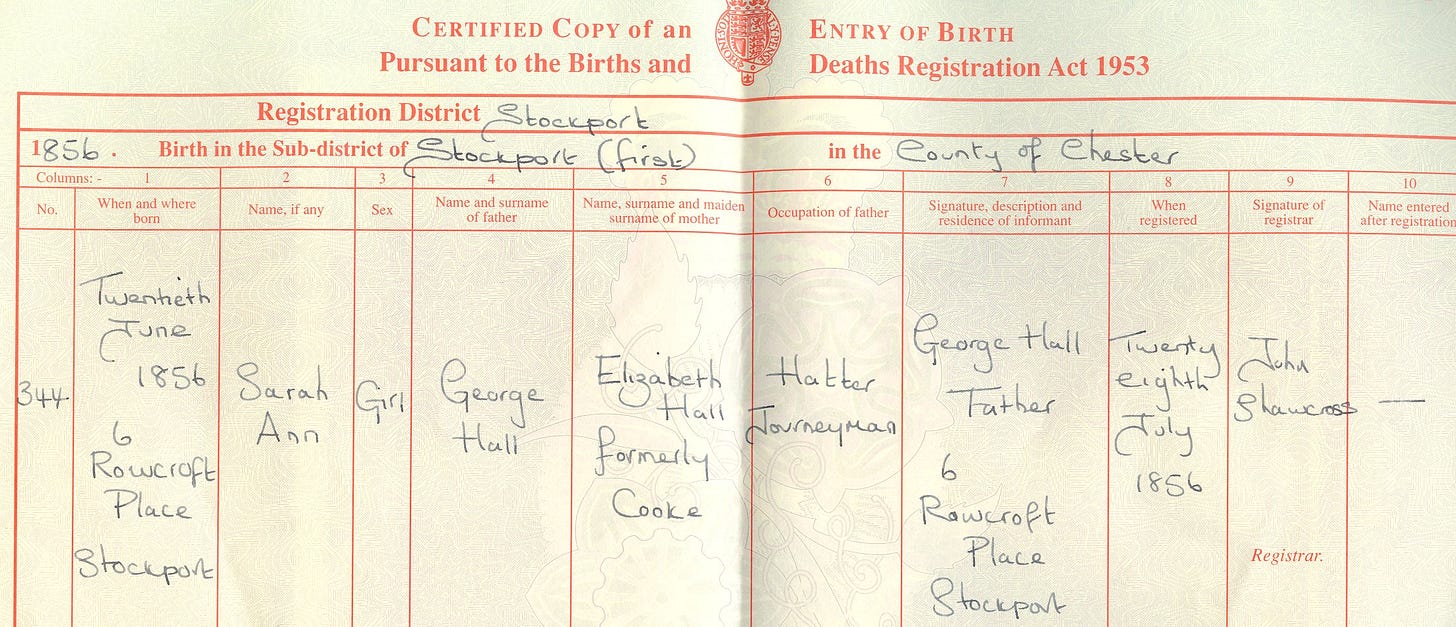 CERTIFIED COPY of an ENTRY OF BIRTH
Pursuant to the Births and Deaths Registration Act 1953
Registration District Stockport
1856. Birth in the Sub-district of Stockport (first) in the County of Chester
Columns: - 1 2 3 4 5 6 7 8 9 10
No.
When and where
born
Name, if any
Sex
Name and surname
of father
Name, surname and maiden
surname of mother
Occupation of father
Signature, description and
residence of informant
When
registered
Signature of
registrar
Name entered
after registration
344
Twentieth
June
1856
6
Rowcroft
Place
Stockport
Sarah
Ann
Girl
George
Hall
Elizabeth
Hall
formerly
Cooke
Hatter
Journeyman
George Hall
Father
6
Rowcroft
Place
Stockport
Twenty
eighth
July
1856
John
Shawcross
Registrar.
—